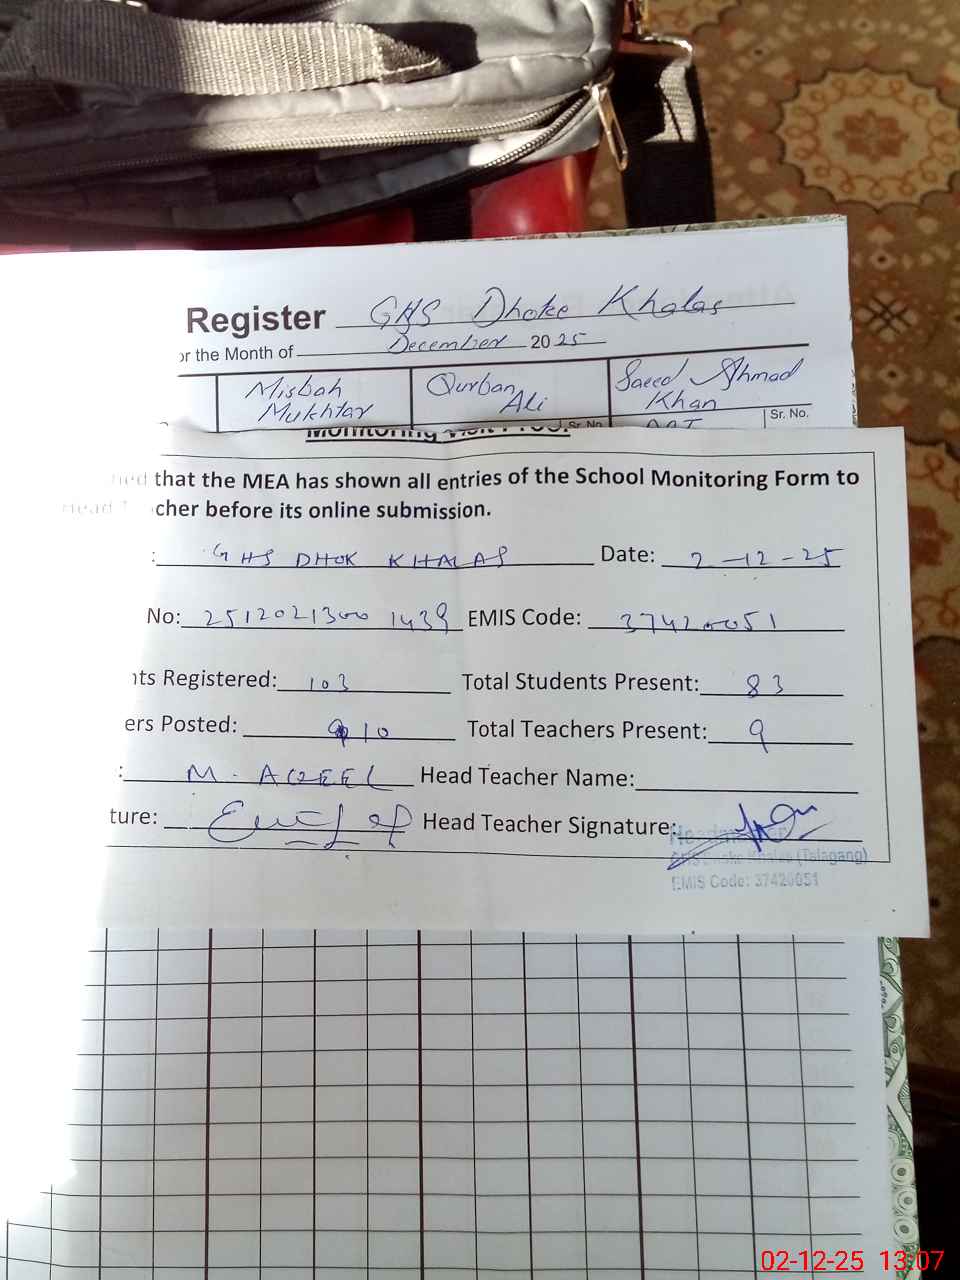 Register GHS Dhoke Khalas
or the Month of December 2025
Misbah Mukhtar Qurban Ali Saeed Ahmad Khan
Sr. No. Sr. No.
Monitoring Visit Proof
that the MEA has shown all entries of the School Monitoring Form to
Head cher before its online submission.
: GHS DHOK KHALAS Date: 2-12-25
No: 2512021300 1439 EMIS Code: 37420051
nts Registered: 103 Total Students Present: 83
ers Posted: 10 Total Teachers Present: 9
: M. AQEEL Head Teacher Name:
ture: Head Teacher Signature:
Headmaster
GHS Dhoke Khalas (Talagang)
EMIS Code: 37420051
02-12-25 13:07